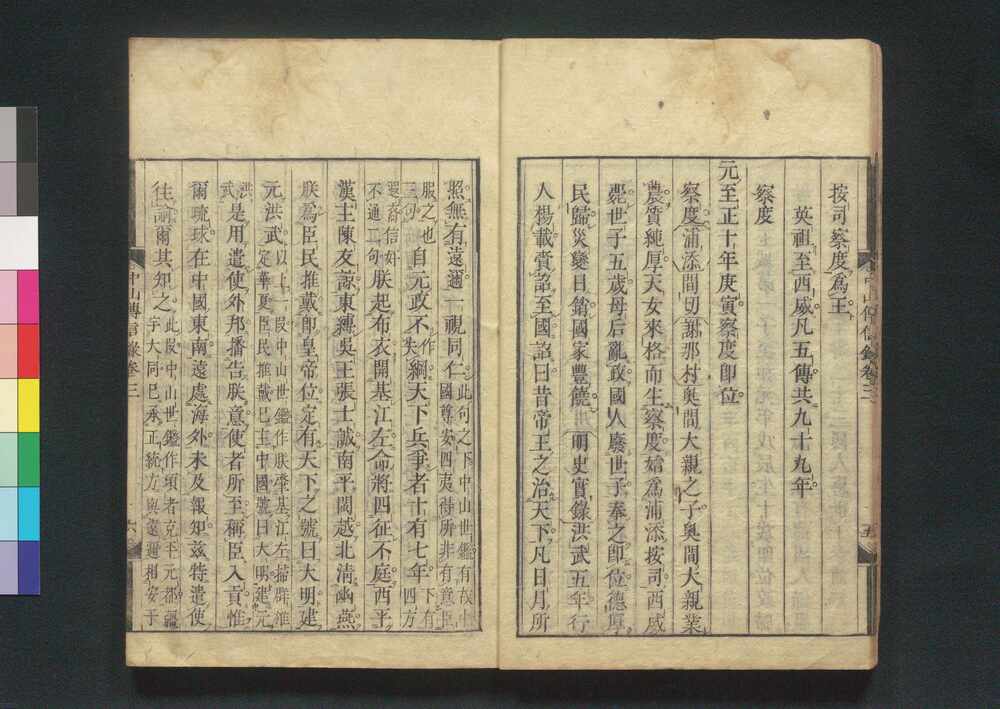 按司察度爲王
英祖至西威凡五傳共九十九年
察度
元至正十年庚寅察度卽位
察度浦添間切謝那村奥間大親之子奥間大親業
農質純厚天女來格而生察度始爲浦添按司西威
薨世子五歲母后亂政國人廢世子奉之卽位德厚
民歸災變日銷國家豐饒明史實錄洪武五年行
人楊載賫詔至國詔曰昔帝王之治天下凡日月所
照無有遠邇一視同仁此句之下中山世鑑有故中
國尊安四夷得所非有意臣
服之也自元政不綱天下兵爭者十有七年
朕起布衣開基江左命將四征不庭西平
漢主陳友諒東縛吳王張士誠南平閩越北清幽燕
朕爲臣民推戴卽皇帝位定有天下之號曰大明建
元洪武以上一段中山世鑑作朕肇基江左掃群雄
定華夏臣民推戴已主中國號曰大明建元
洪武是用遣使外邦播告朕意使者所至稱臣入貢惟
爾琉球在中國東南遠處海外未及報知茲特遣使
往諭爾其知之此段中山世鑑作項者克平元都疆
宇大同已承正統方與遠邇相安于
中山傳信錄卷三
六
五